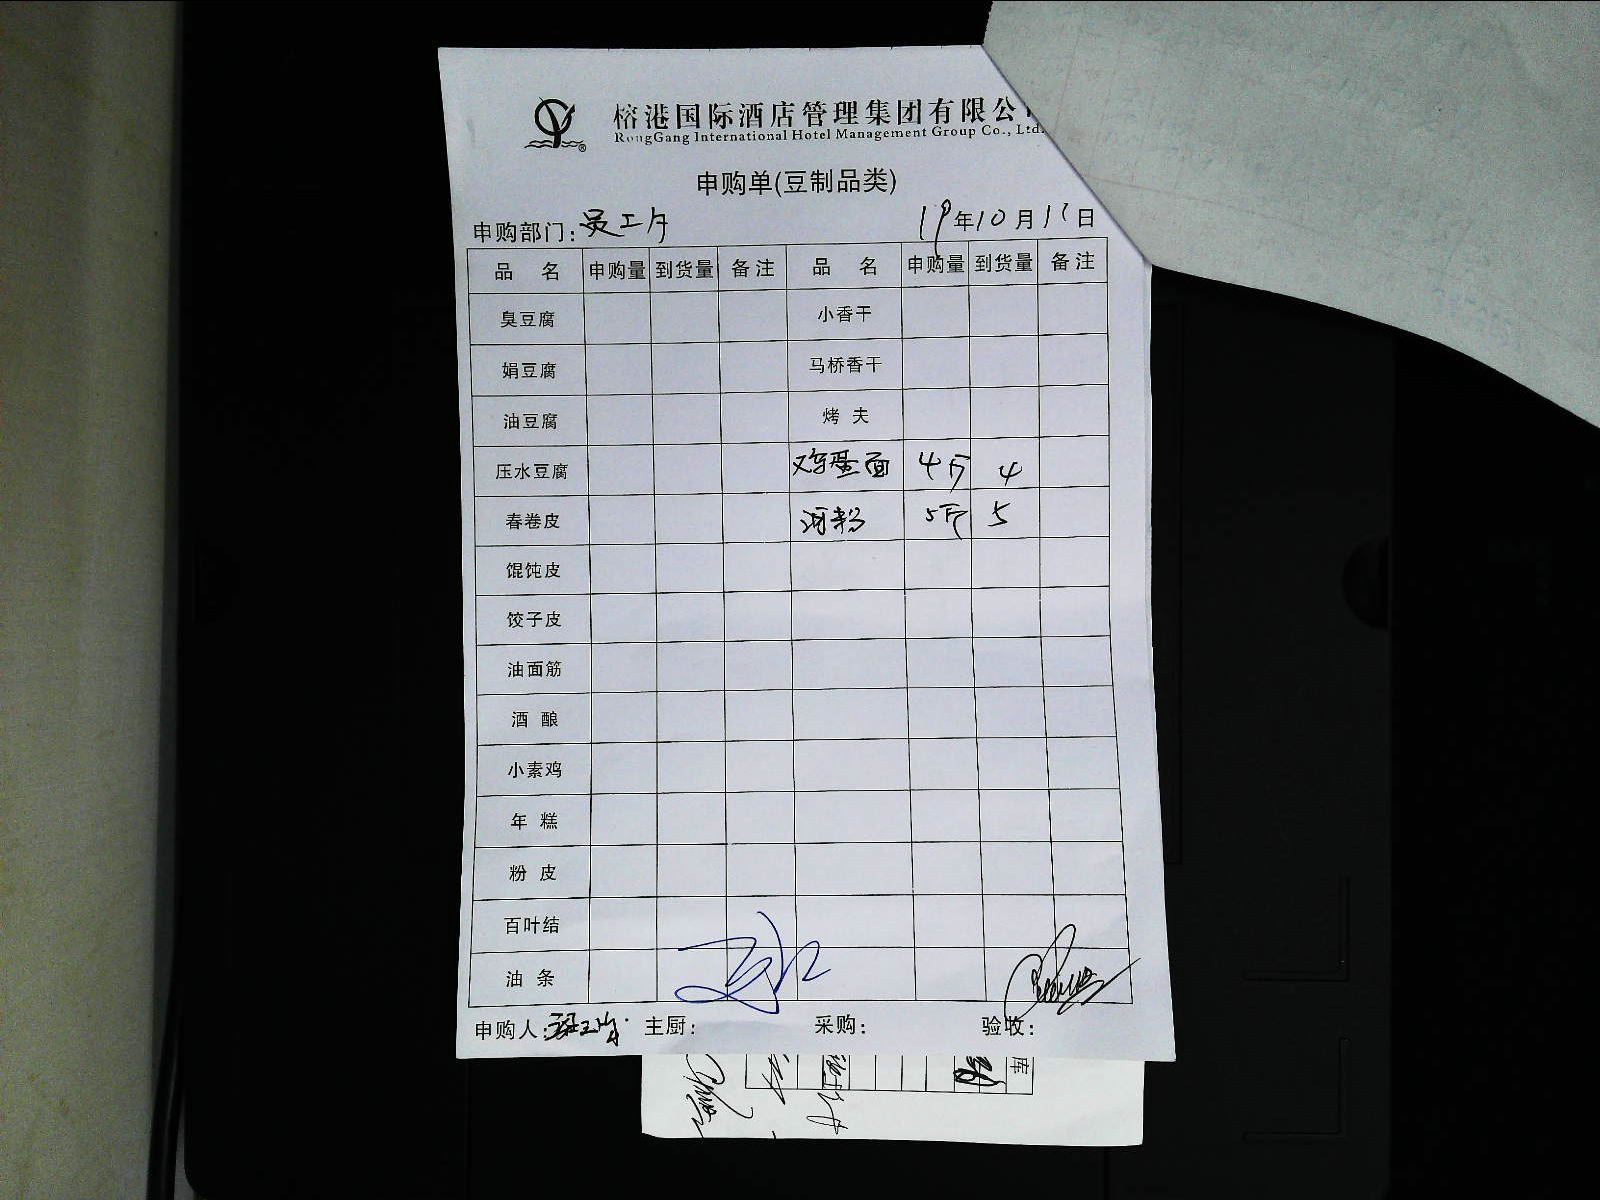 榕港国际酒店管理集团有限公
RongGang International Hotel Management Group Co., Ltd.
申购单(豆制品类)
申购部门: 员工 19年10月11日
品 名 申购量 到货量 备注 品 名 申购量 到货量 备注
臭豆腐 小香干
娟豆腐 马桥香干
油豆腐 烤 夫
压水豆腐 鸡蛋面 4斤 4
春卷皮 河粉 5斤 5
馄饨皮
饺子皮
油面筋
酒 酿
小素鸡
年 糕
粉 皮
百叶结
油 条
申购人: 主厨: 采购: 验收:
库